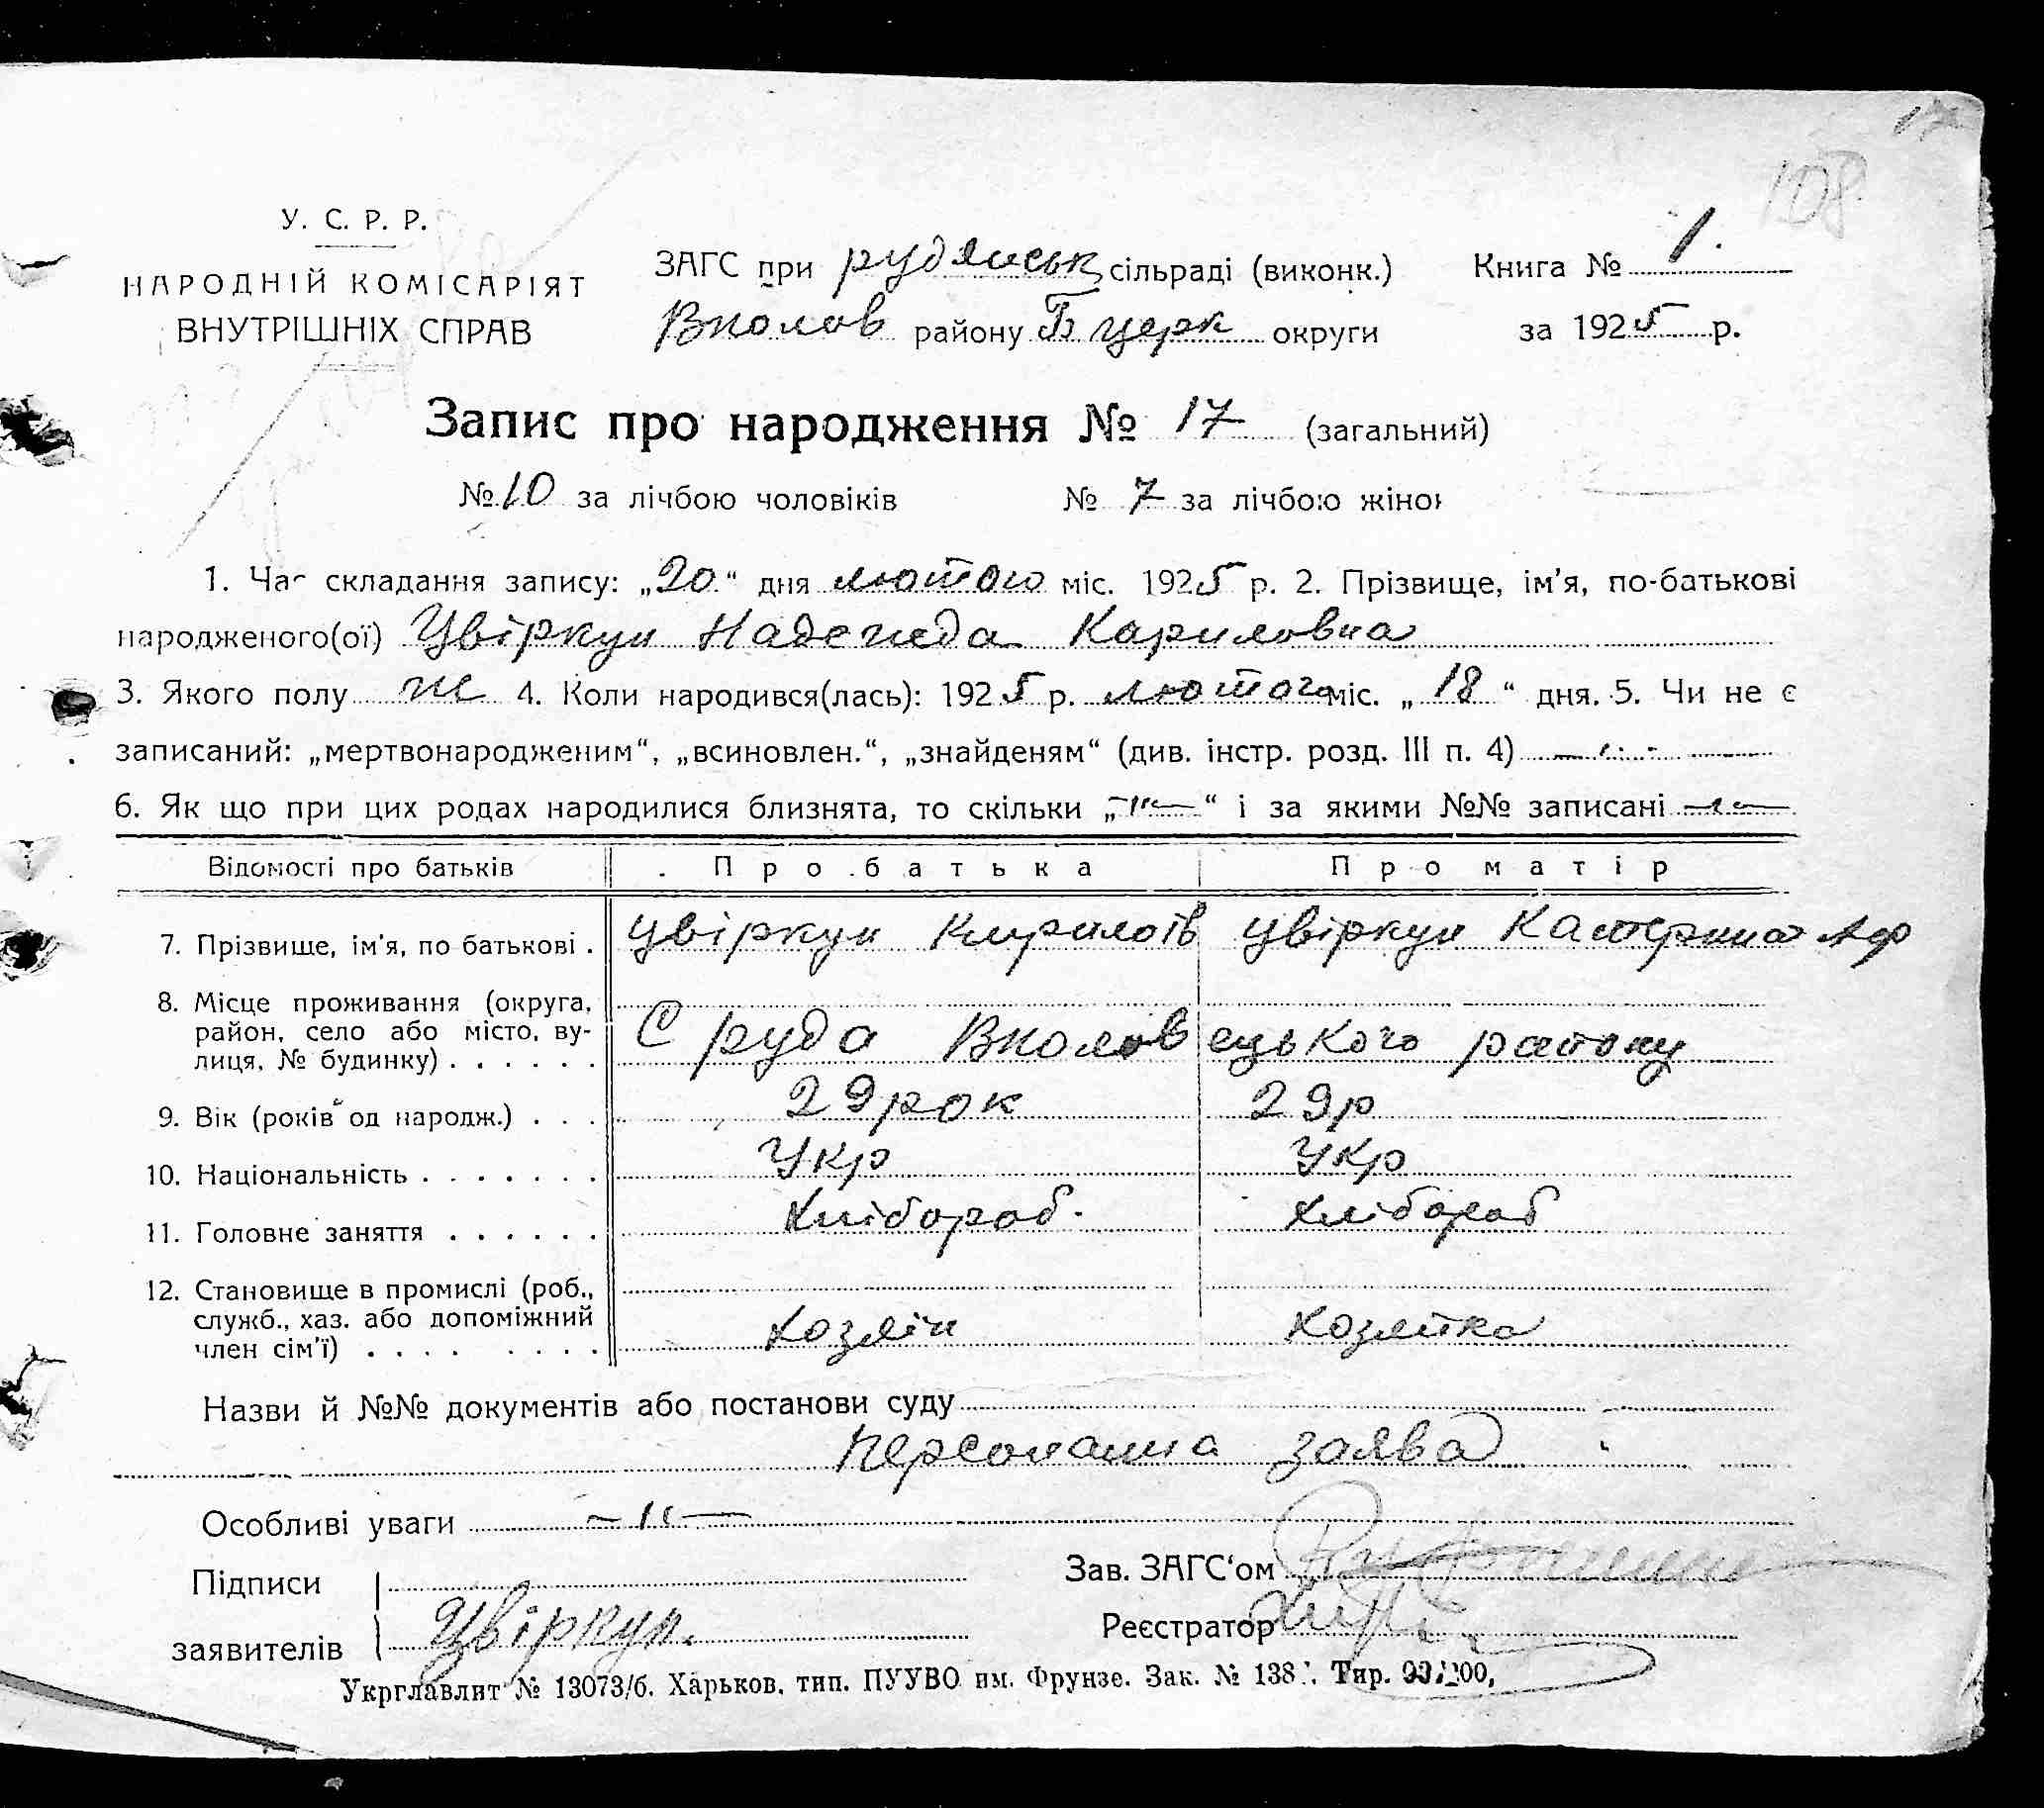 108
У. С. Р. Р.
НАРОДНІЙ КОМІСАРІЯТ
ВНУТРІШНІХ СПРАВ
ЗАГС при рудянськ сільраді (виконк.)
Вполов району Б церк округи
Книга № 1.
за 1925 р.
Запис про народження № 17 (загальний)
№ 10 за лічбою чоловіків № 7 за лічбою жінок
1. Час складання запису: „20“ дня лютого міс. 1925 р. 2. Прізвище, ім’я, по-батькові
народженого(ої) Цвіркун Надежда Кариловна
3. Якого полу ж 4. Коли народився(лась): 1925 р. лютого міс. „18“ дня. 5. Чи не є
записаний: „мертвонародженим“, „всиновлен.“, „знайденям“ (див. інстр. розд. III п. 4) —„—
6. Як що при цих родах народилися близнята, то скільки „—„—“ і за якими №№ записані —„—
Відомості про батьків Про батька Про матір
7. Прізвище, ім’я, по батькові . Цвіркун Кирило Цвіркун Катерина Аф
8. Місце проживання (округа,
район, село або місто, ву-
лиця, № будинку) . . . . . . С руда Вполовецького району
9. Вік (років од народж.) . . . 29 рок 29 р
10. Національність . . . . . . . Укр Укр
11. Головне заняття . . . . . . Хлібороб. Хлібороб
12. Становище в промислі (роб.,
служб., хаз. або допоміжний
член сім’ї) . . . . . . . . Хозяін Хозяйка
Назви й №№ документів або постанови суду
Персонална заява
Особливі уваги —„—
Підписи
заявителів Цвіркун.
Зав. ЗАГС‘ом
Реєстратор
Укрглавлит № 13073/б. Харьков, тип. ПУУВО им. Фрунзе. Зак. № 138 Тир.